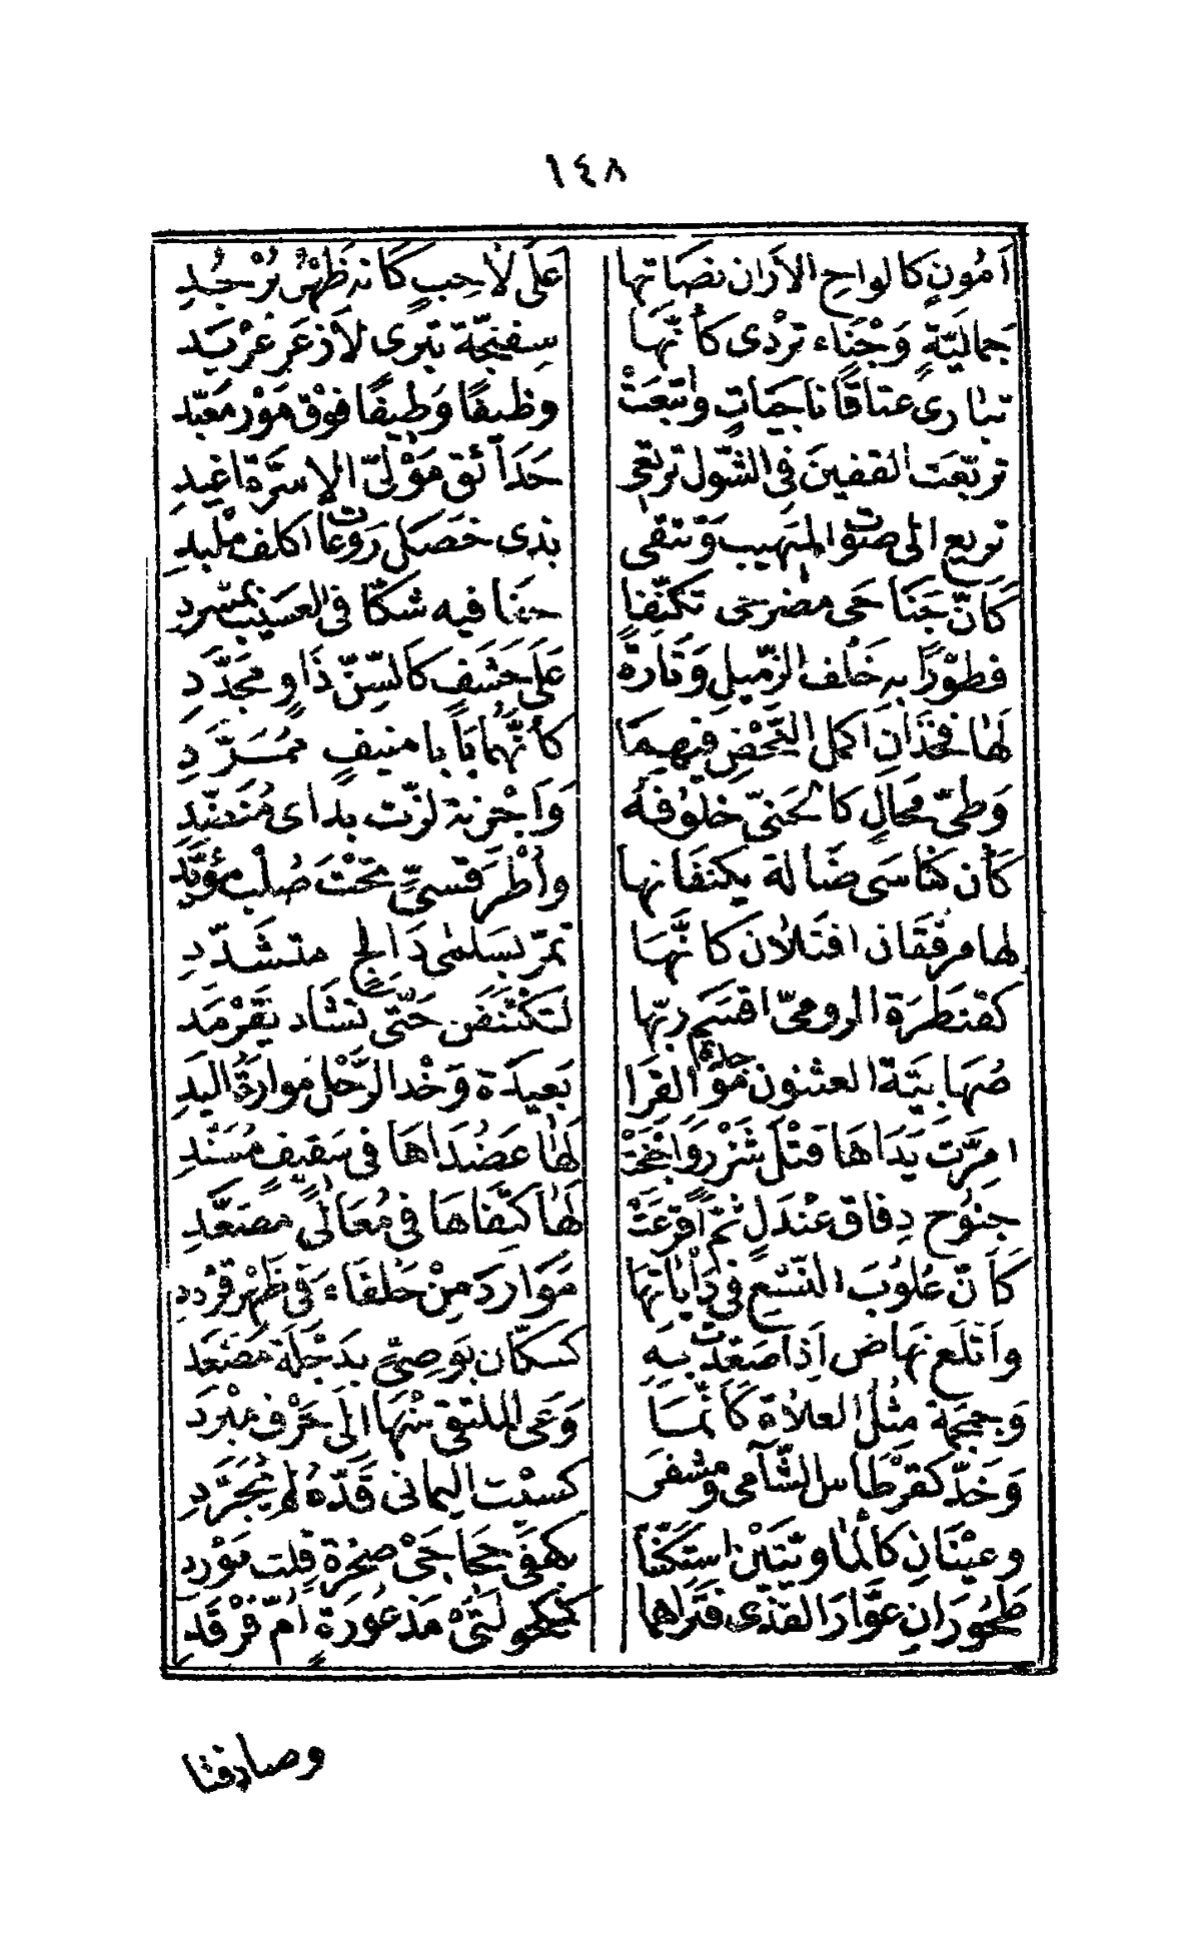 ١٤٨
اَمُونٍ كالواحِ الاَرانِ نصَاتها عَلَى لاٰحِبٍ كَانه ظَهْرُ بُرْجُدِ
جَماليَّةٍ وَجْنَاء تَرْدى كَأنَّهَا سِفنجّة تبرى لاَزعَر عُرْبَد
تبارى عتاقًا ناجيَاتٍ واتبعَتْ وظيفًا وَظيفًا فوْق مَوْر مَعبّد
تربّعَت القفينَ فِى الشّول ترتعى حَدَائق مَوْلىّ الاسرَّة اغيدِ
تريع الى صَوْت المهيب وَتتقى بذى خصَل رَوْعات اكلف ملبدِ
كَأنّ جَنَاحَى مضرحى تكنّفا حفافيه شكّا فى العسيب بمسرد
فطوْرًا به خَلْف الزّميل وَتَارَةً عَلَى حَشَفٍ كَالشّنّ ذَاوٍ مجَدَّدِ
لهَا فخذَانِ اكمل النّحْضِ فيهمَا كأنّهما بَابا منيفٍ مُمَرَّدِ
وَطىّ مَحَالٍ كالحَنىّ خلُوفهُ وَاجْرنة لزّت بداى مُنضّدِ
كَأن كنَاسَى ضَالة يكنفَانها وأطْرَ قسىٍّ تحْتَ صُلْب مؤيّد
لها مرْفقَان افتلان كانّهَا تمرّ بسَلمٰى دَالجٍ متشَدّدِ
كقنطرَة الرومىّ اقسَم ربّها لتكتنفَن حَتّى تشَاد بقرْمَد
صُهابيّة العثنون مُوْجدة القرَا بَعيدَة وَخْد الرّحْل موارَة اليَدِ
امِرّت يَدَاهَا فتْل شَزْر وَاجْنحَتْ لهَا عَضُدَاهَا فى سَقيفٍ مُسَنَّدِ
جنوُح دِفاق عنْدَلٍ ثمّ اُفرعَتْ لهَا كتفَاهَا فى مُعَالًى مصَعّدِ
كَأنّ عُلوُبَ النّسْعِ فى دَأيَاتهَا مَوَاردَ مِنْ خَلْقاءَ فى ظهْر قرْددِ
وَاَتلَع نهاض اَذا صَعّدت بهِ كسكّان بوصىٍّ بدَجْلَة مصْعَدِ
وَجمجمَة مثل العلاٰة كَأنّمَا وَعى الملتقى منْهَا الى حَرْف مبْرَدِ
وَخدّ كقرْطاس الشّآمى ومشفرَ كسبْت اليمانى قَدّهُ لم يُجَرّدِ
وعيْنَانِ كالمَاوتيّتَيْن استكنّتا بكهفَى حجَاجَىْ صخرَة قلت مَوْردِ
طَحُورَان عوّارَ القذى فتراهما كمكحولتَىْ مَذعُورَة اُمّ فرْقَدِ
وصادقتا